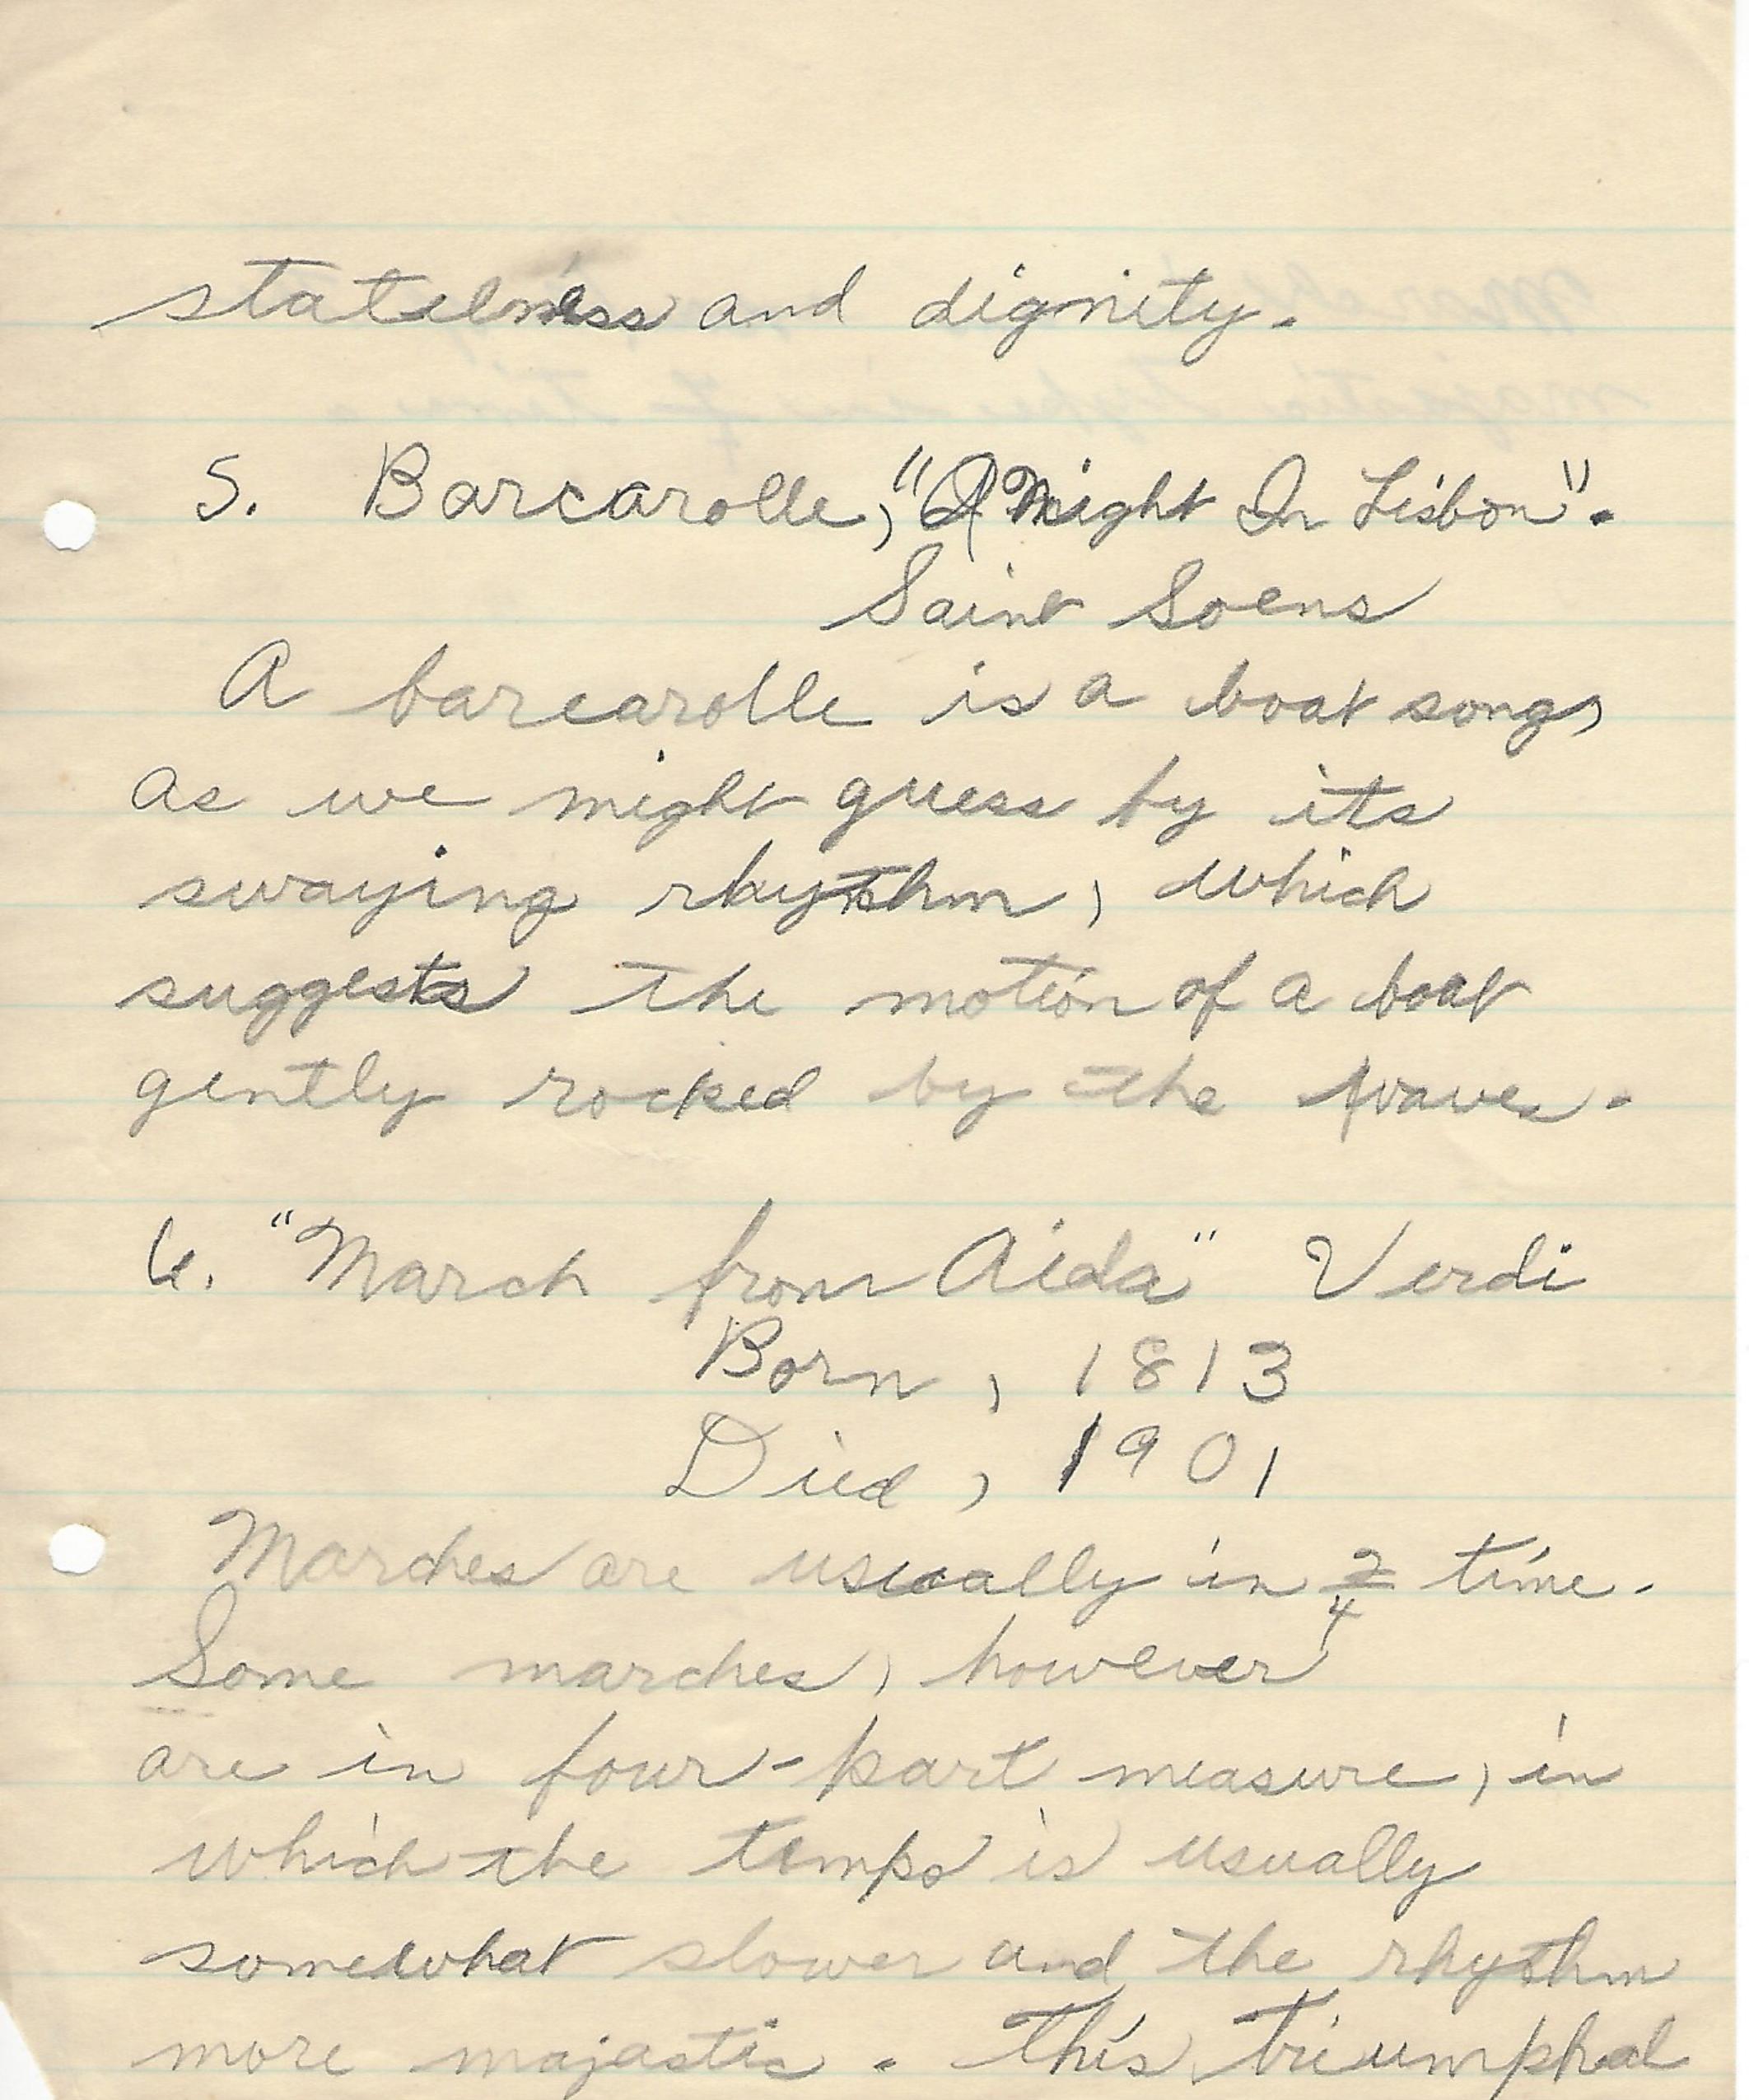 statelness and dignity.
5. Barcarolle, "A Night In Lisbon".
Saint Soens
A barcarolle is a boat song,
as we might guess by its
swaying rhythm, which
suggests the motion of a boat
gently rocked by the waves.
6. "March from Aida" Verdi
Born, 1813
Died, 1901
Marches are usually in 2/4 time.
Some marches, however
are in four-part measure, in
which the tempo is usually
somewhat slower and the rhythm
more majastic. This triumphal